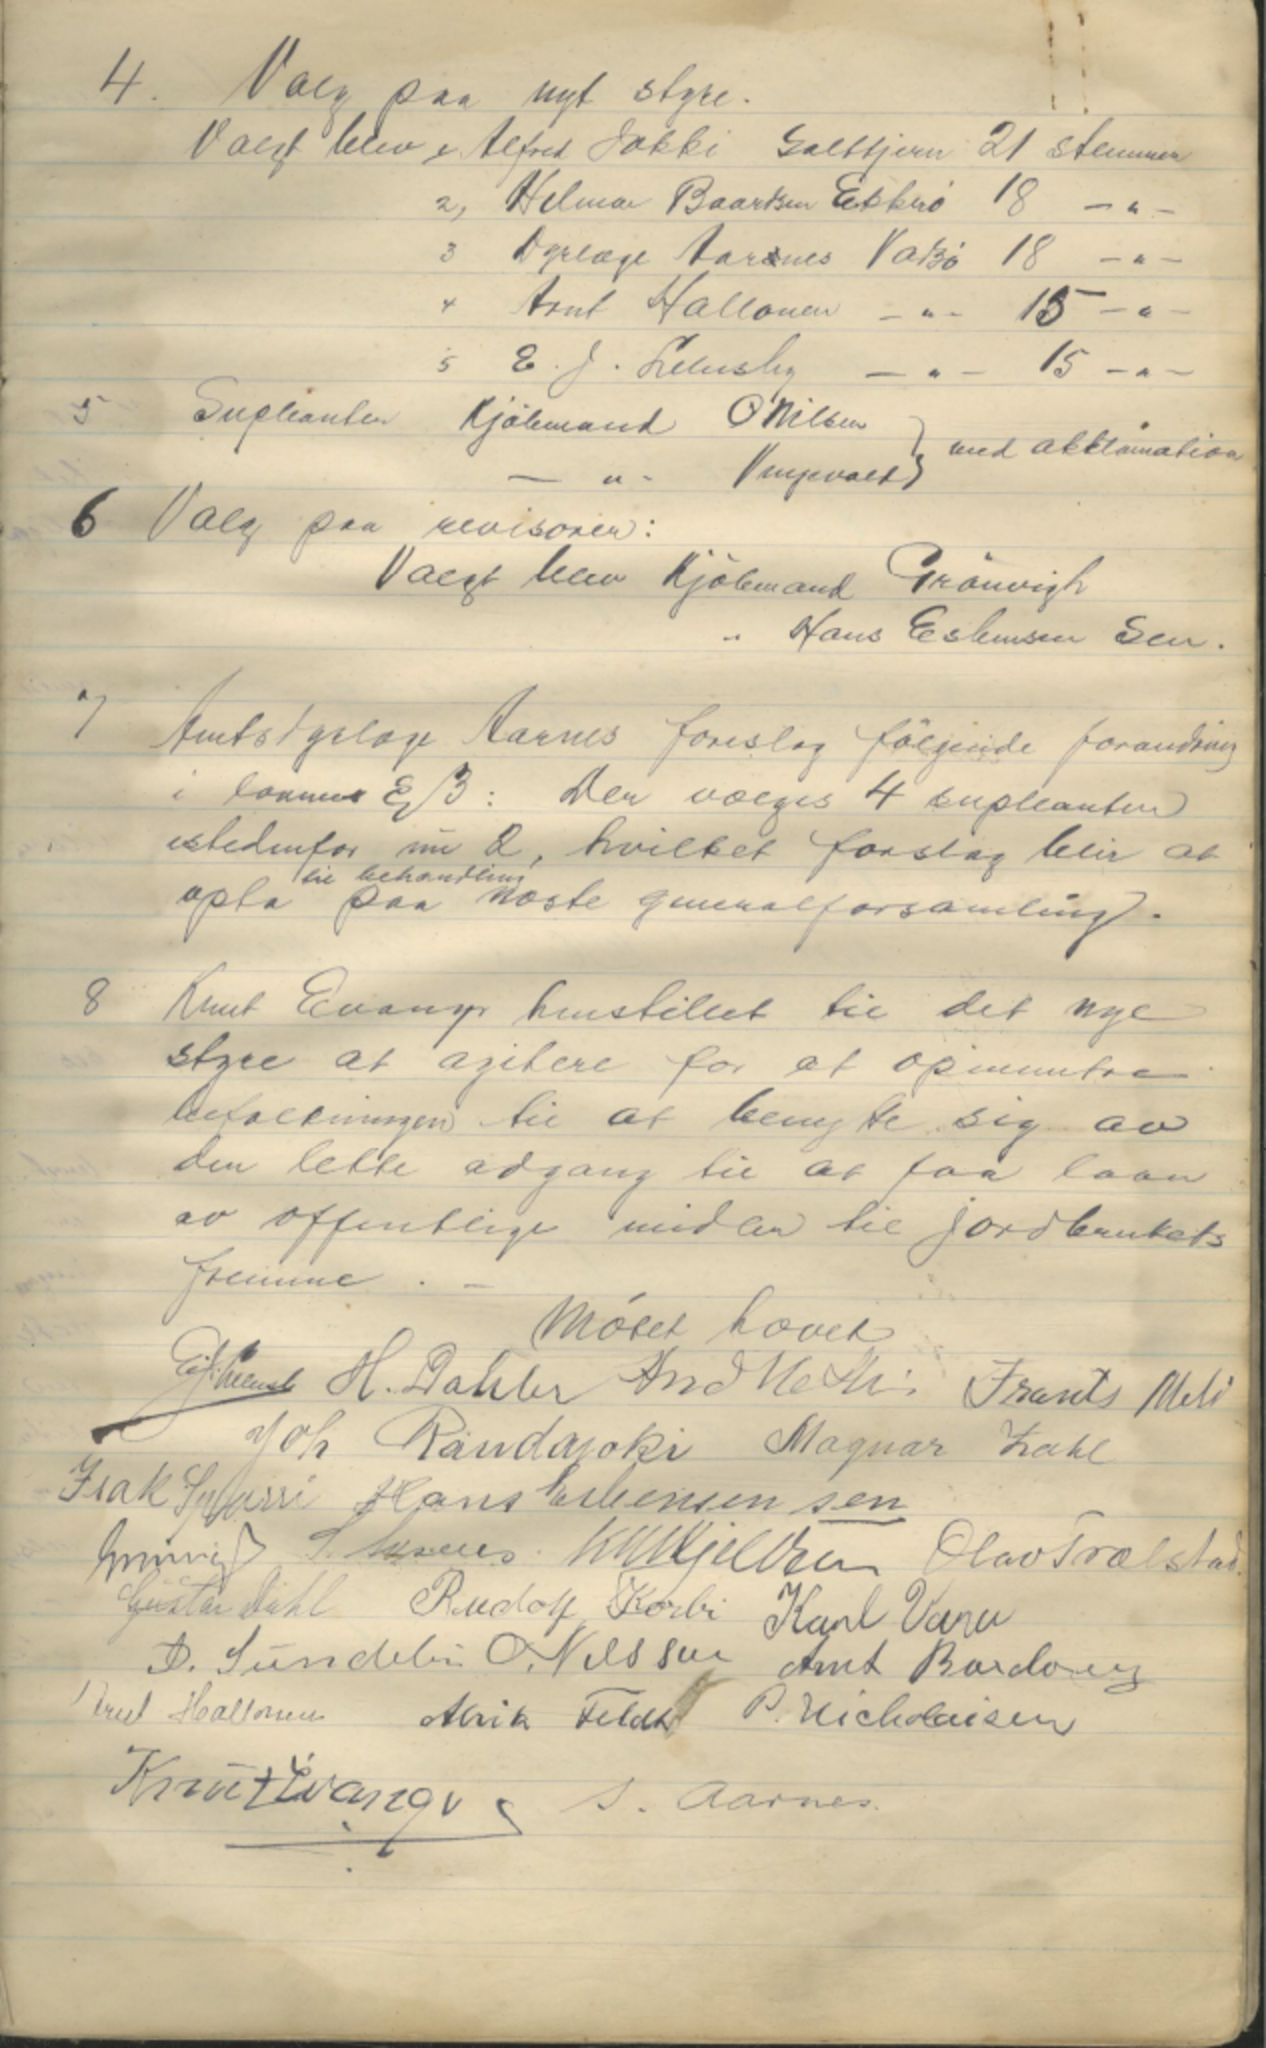 4. Valg paa nyt styre.
Valgt blev 1, Alfred Jokki Galttjern 21 stemmer
2, Helmar Baardsen Ekkerö 18 — " —
3 Dyrlæge Aarnes Vadsö 18 — " —
4 Arnt Hallonen — " — 15 — " —
5 E. J. — " — 15 — " —
5 Supleanter Kjöbmand O Nilsen } med akklamation
— " — }
6 Valg paa revisorer:
Valgt blev Kjöbmand Grönvigh
" Hans Esbensen Sen.
7 Amtsdyrlæge Aarnes foreslog fölgende forandring
i lovenes § 3: Der vælges 4 supleanter
istedenfor nu 2, hvilket forslag blir at
opta til behandling paa næste generalforsamling.
8 Knut Evanger henstillet til det nye
styre at agitere for at opmuntre
befolkningen til at benytte sig av
den lette adgang til at faa laan
av offentlige midler til jordbrukets
fremme. —
Mötet hævet
H. Dahler And Frants
Joh Randajoki Magnar Zahl
Isak Hans Esbensen sen
Olav Trælstad.
Gustav Dahl Rudolf Korbi Karl Vara
D. Sundelin O. Nilssen Arnt
Arnt Hallonen Alrik Feldt P. Nicholaisen
Knut Evanger S. Aarnes.